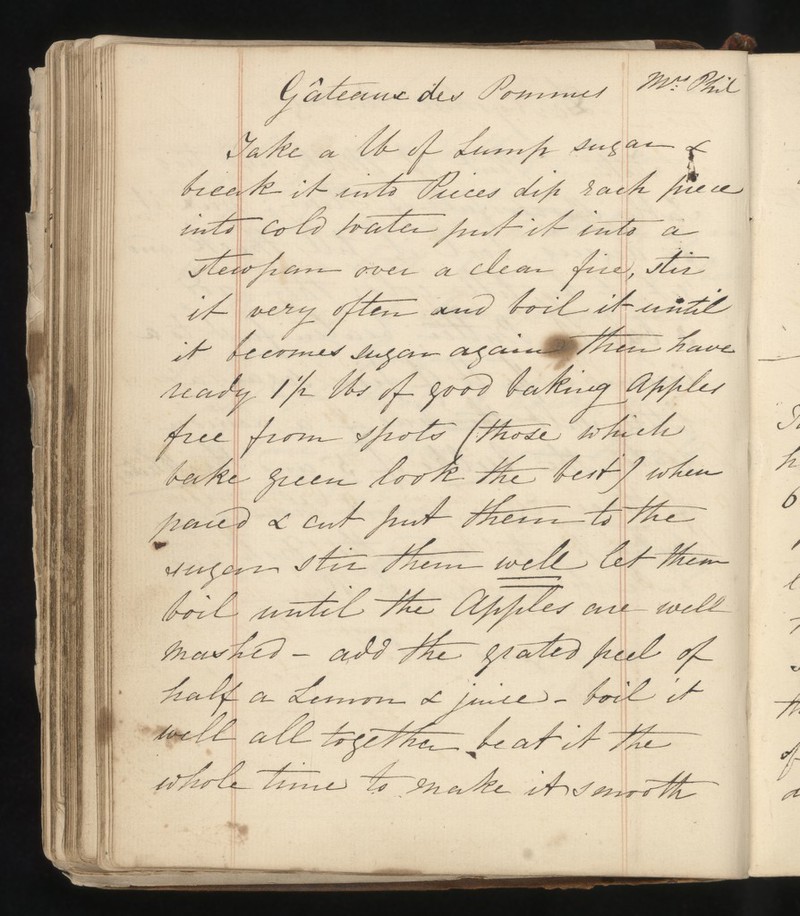 Gâteaux des Pommes Mrs Phil
Take a lb of Lump sugar &
break it into Pieces dip each piece
into cold water put it into a
stewpan over a clear fire, stir
it very often and boil it until
it becomes sugar again then have
ready 1½ lbs of good baking Apples
free from spots (those which
bake green look the best) when
pared & cut put them to the
sugar stir them well let them
boil until the Apples are well
mashed - add the grated peel of
half a Lemon & juice - boil it
well all together beat it the
whole time to make it smooth